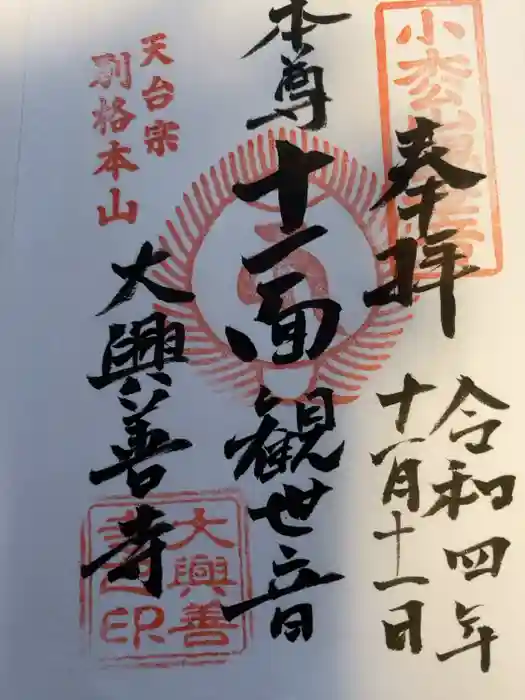 奉拝
令和四年
十一月十一日
本尊
十一面観世音
天台宗
別格本山
大興善寺
大興善
寺印
小松山